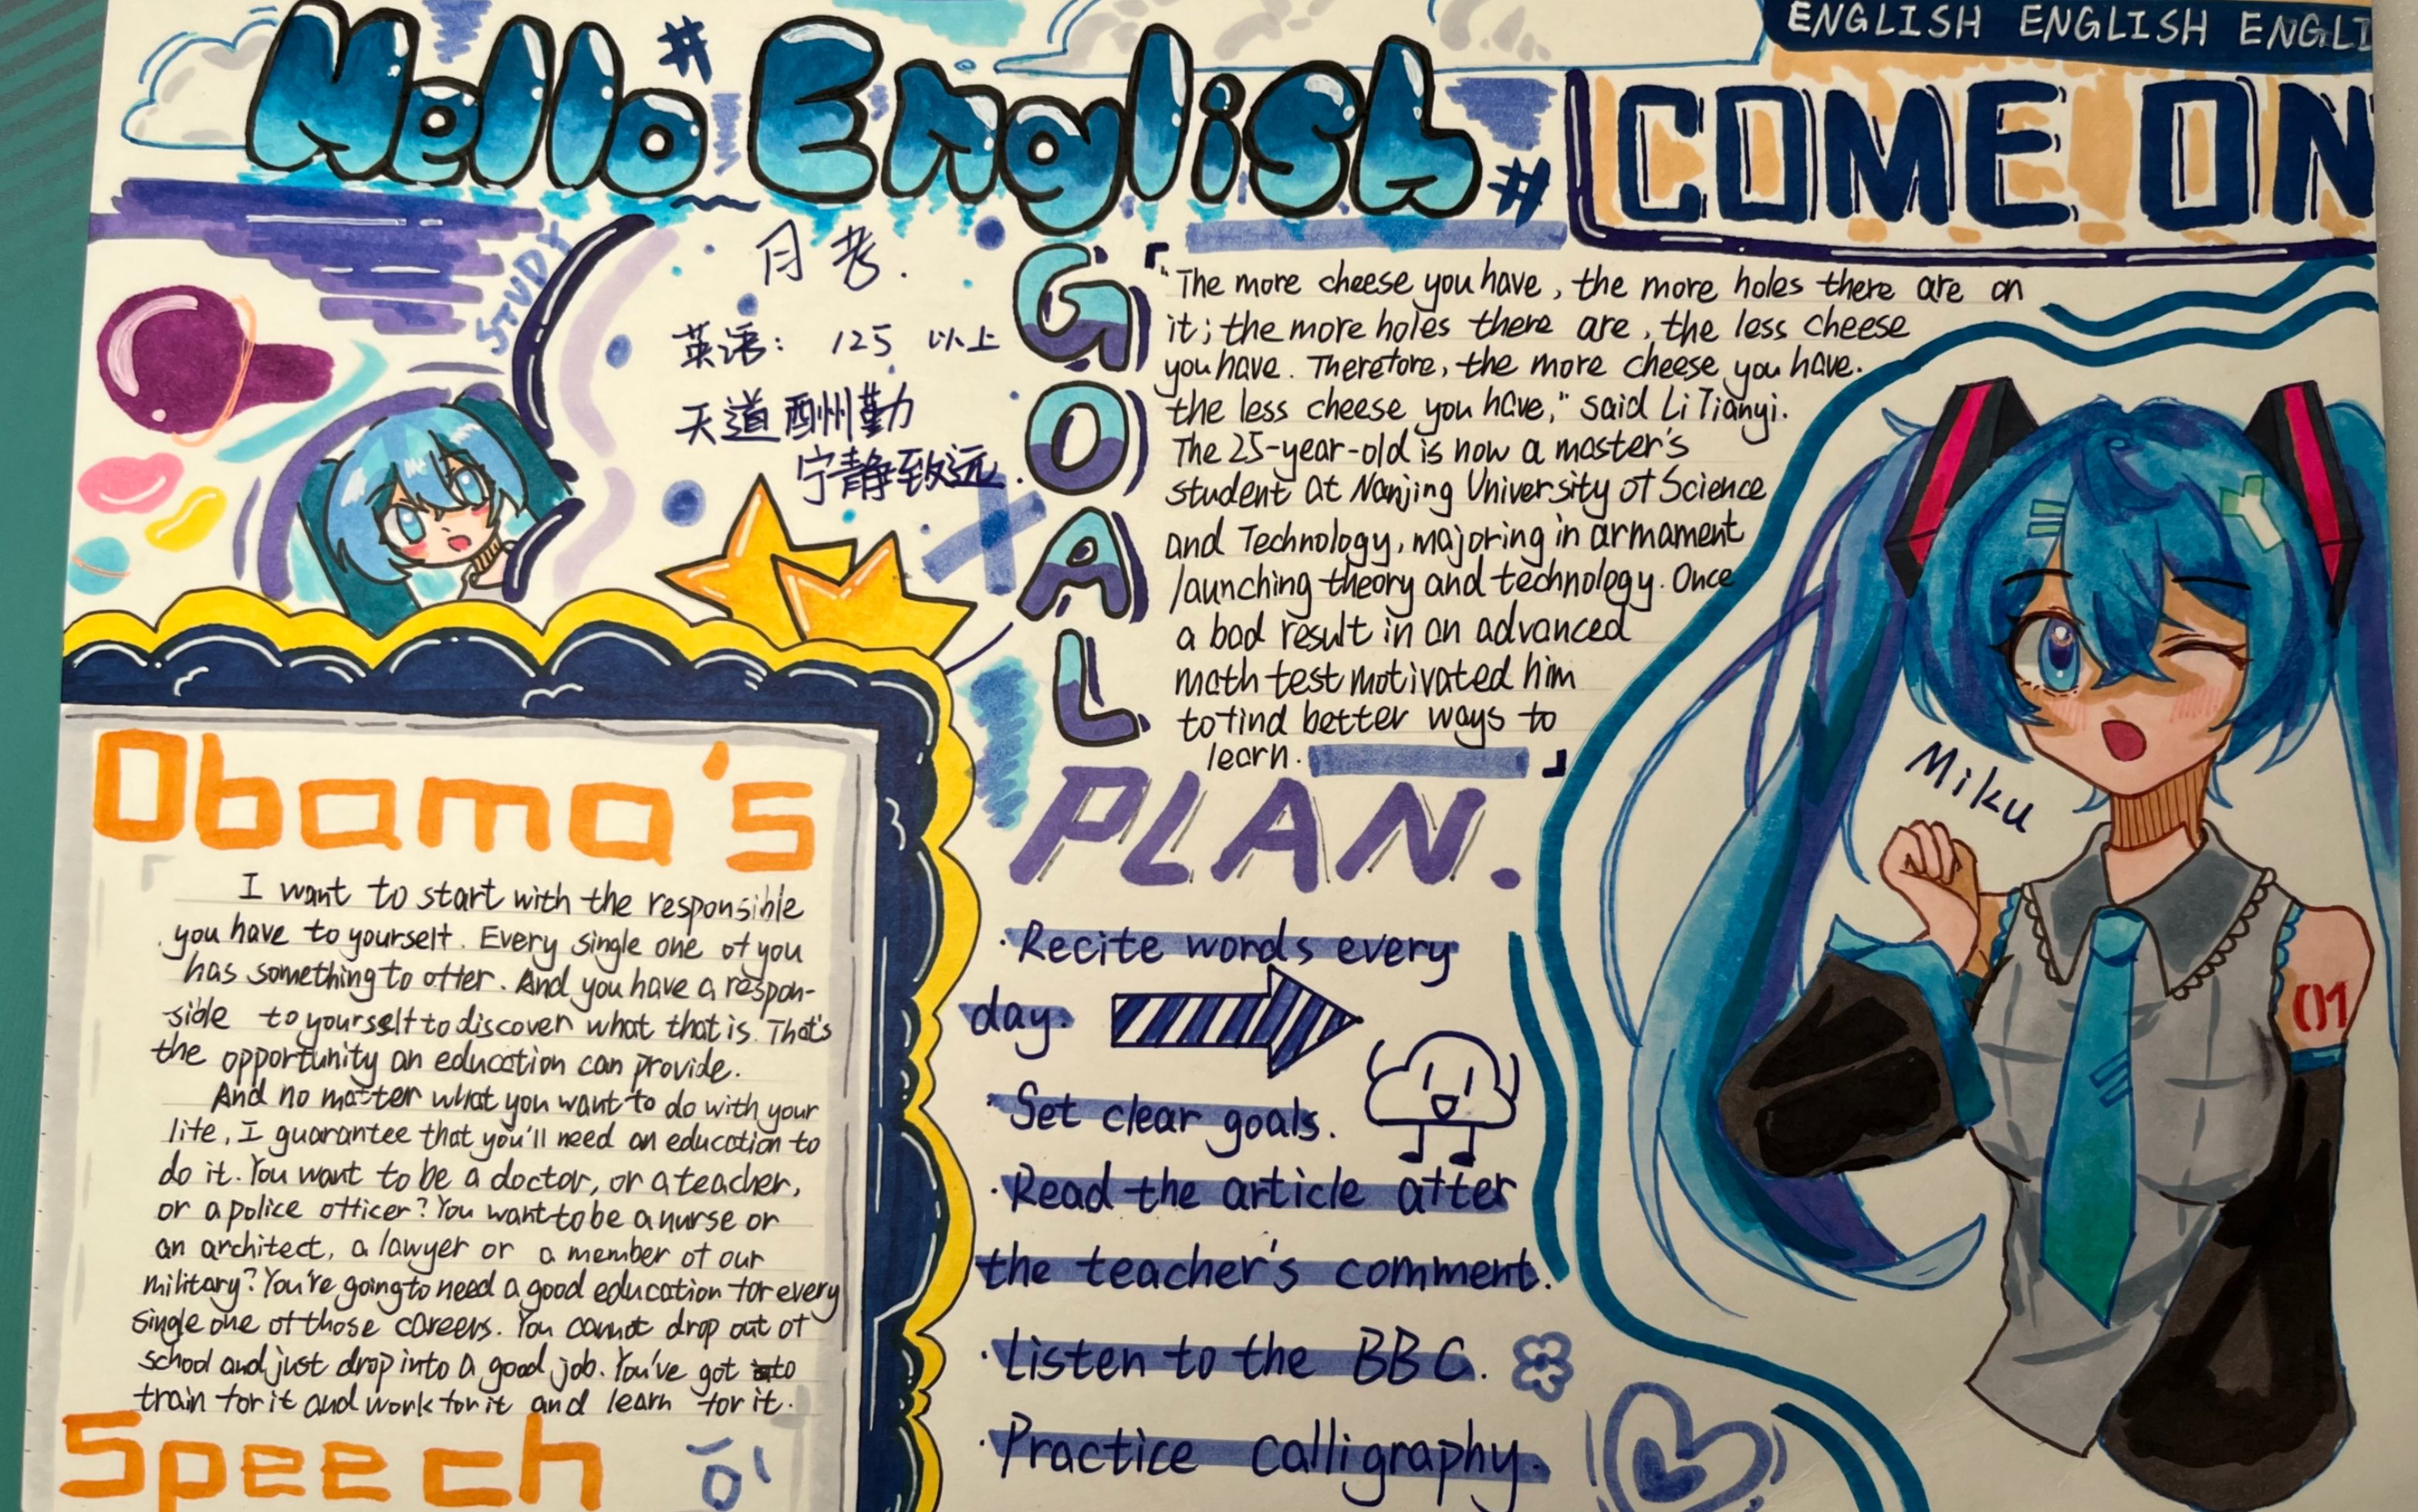 Hello English
ENGLISH ENGLISH ENGLI
COME ON
STUDY
月考.
英语: 125 以上
天道酬勤
宁静致远.
GOAL
"The more cheese you have, the more holes there are on
it; the more holes there are, the less cheese
you have. Therefore, the more cheese you have.
the less cheese you have," said Li Tianyi.
The 25-year-old is now a master's
student at Nanjing University of Science
and Technology, majoring in armament
launching theory and technology. Once
a bad result in an advanced
math test motivated him
to find better ways to
learn.
Miku
01
Obama's
I want to start with the responsible
you have to yourself. Every single one of you
has something to offer. And you have a respon-
sible to yourself to discover what that is. That's
the opportunity an education can provide.
And no matter what you want to do with your
life, I guarantee that you'll need an education to
do it. You want to be a doctor, or a teacher,
or a police officer? You want to be a nurse or
an architect, a lawyer or a member of our
military? You're going to need a good education for every
single one of those careers. You cannot drop out of
school and just drop into a good job. You've got to
train for it and work for it and learn for it.
Speech
PLAN.
·Recite words every
day.
·Set clear goals.
·Read the article after
the teacher's comment.
·Listen to the BBC.
·Practice calligraphy.